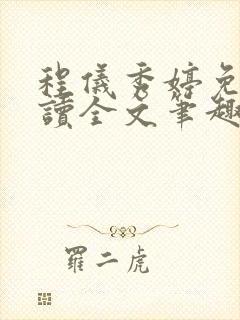 程儀秀婷免
讀全文筆趣
羅二虎